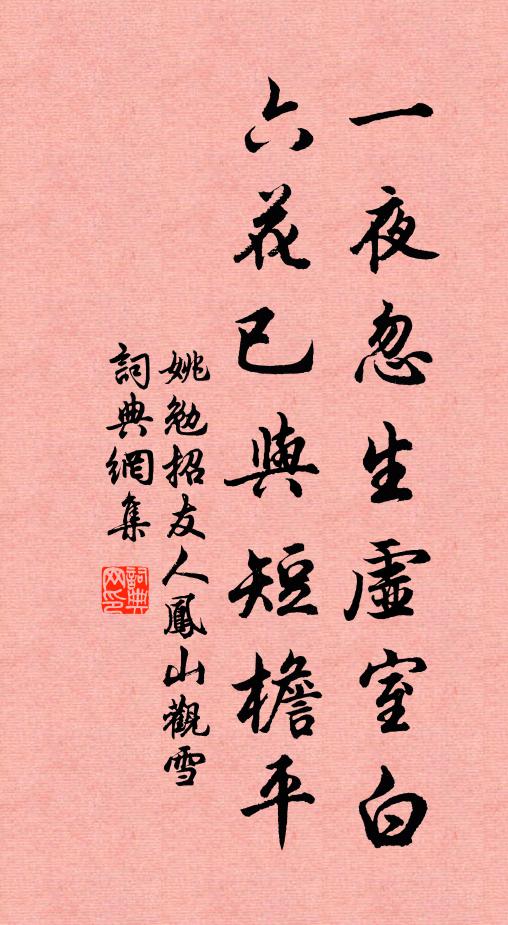 一夜忽生虛室白
六花已與短檐平
姚勉招友人鳳山觀雪
詞典網集
詞典网印